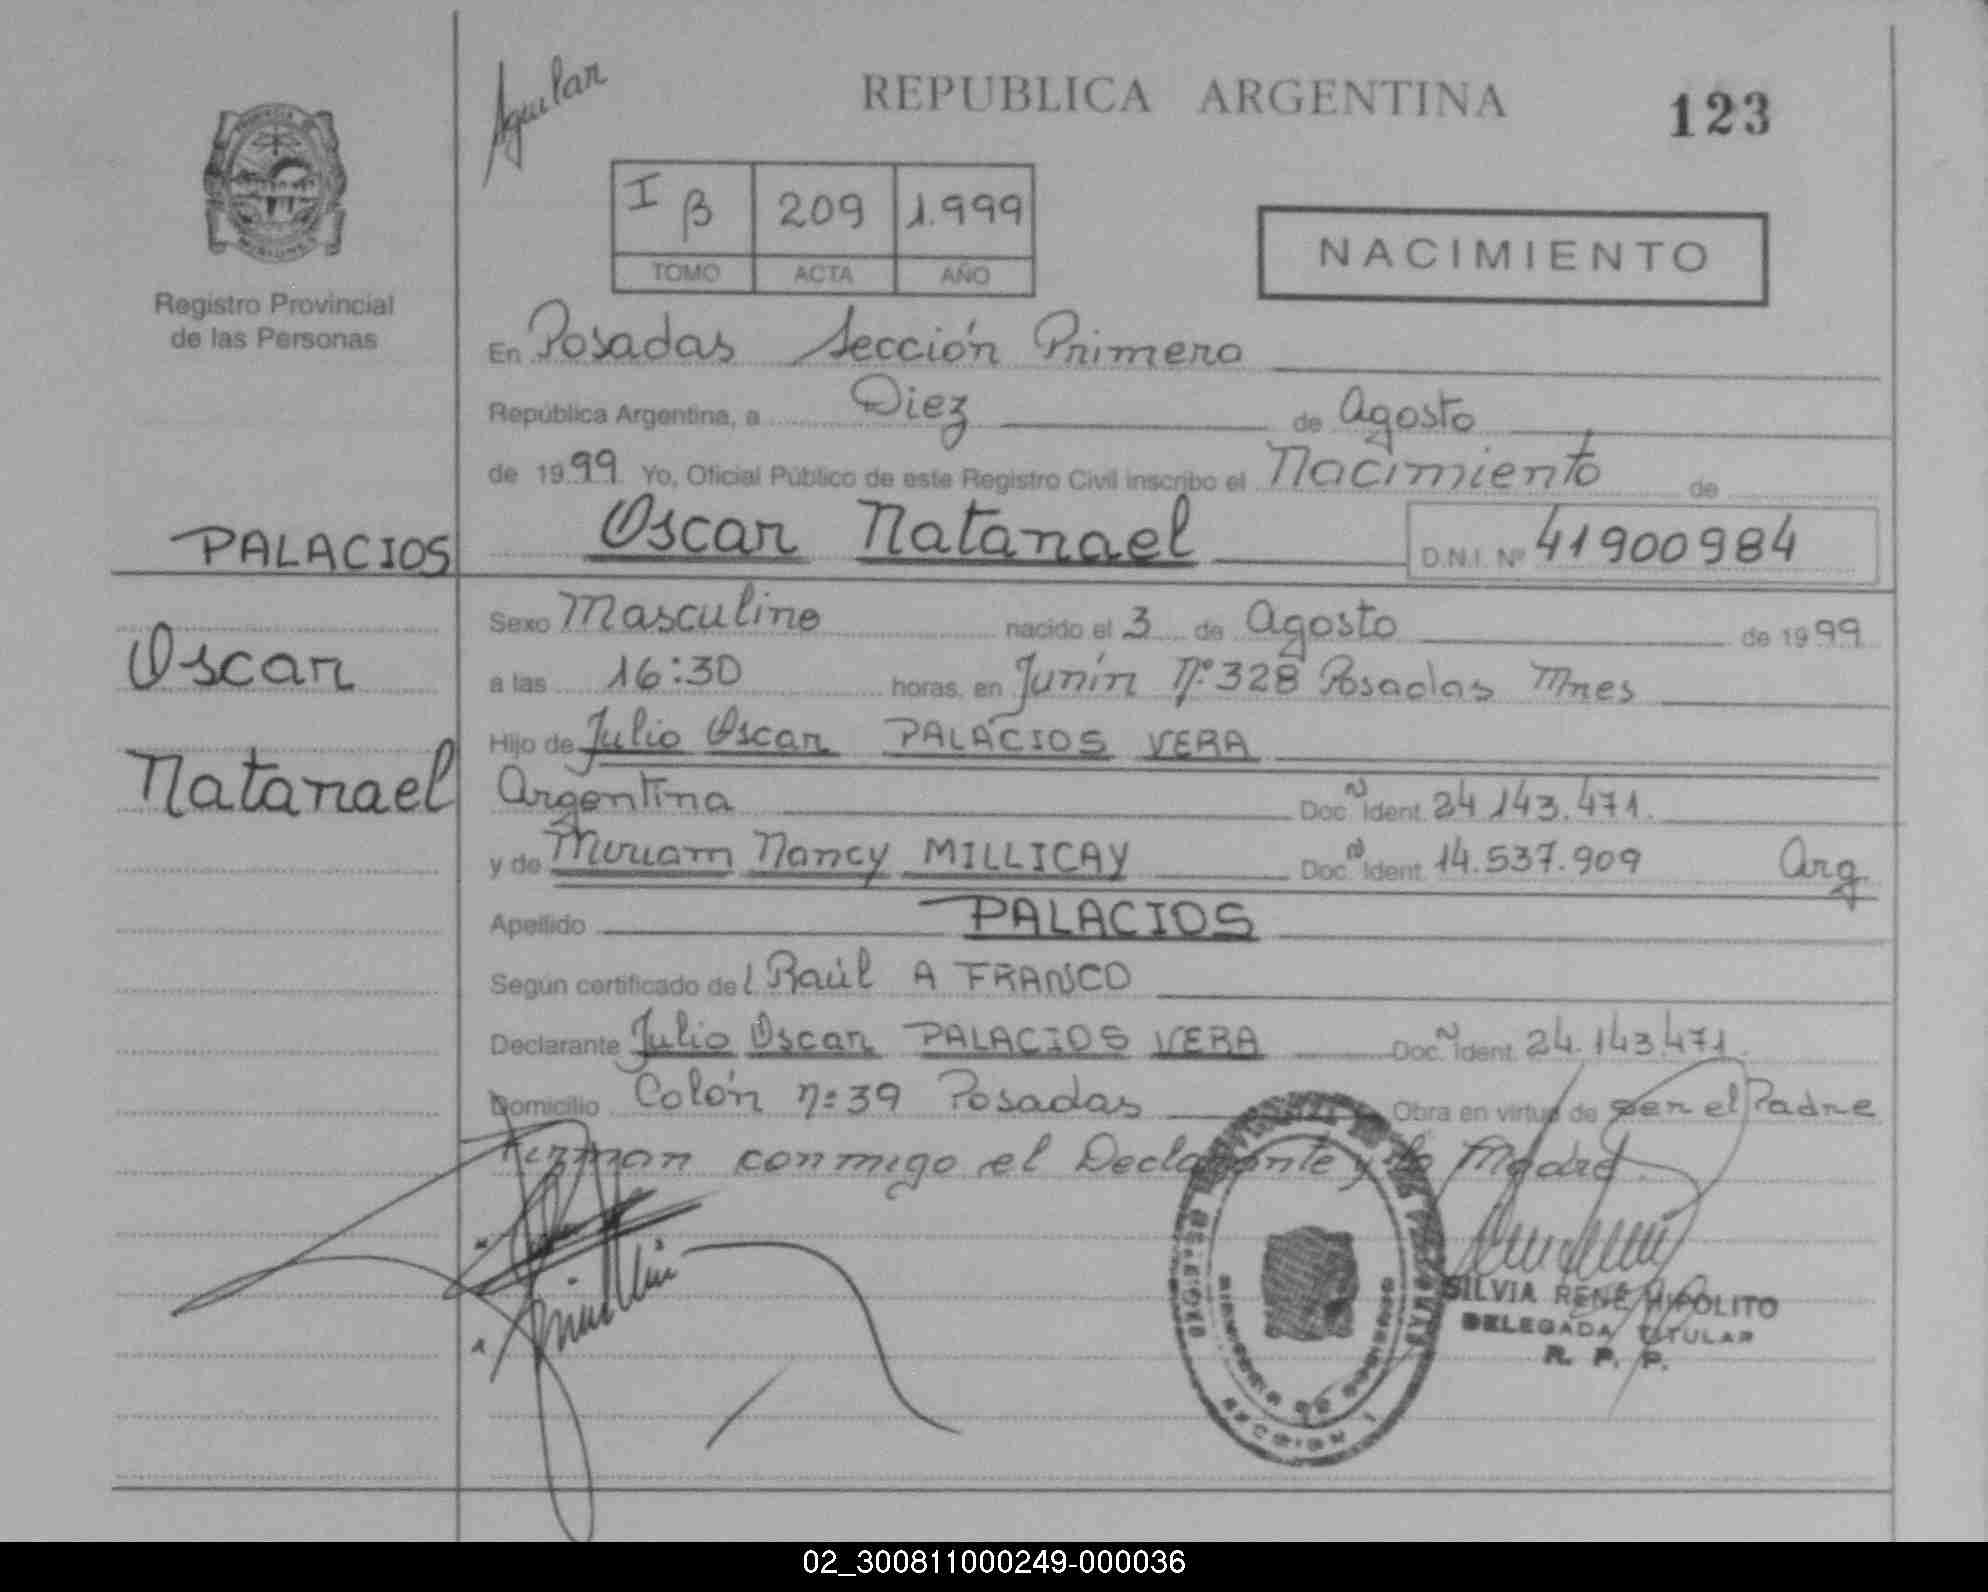 Aguilar
REPUBLICA ARGENTINA
123
I β 209 1.999
TOMO ACTA AÑO
NACIMIENTO
Registro Provincial
de las Personas
En Posadas Sección Primera
República Argentina, a Diez de Agosto
de 1999 Yo, Oficial Público de este Registro Civil inscribo el Nacimiento de
PALACIOS
Oscar Natanael
D.N.I. Nº 41900984
Oscar
Natanael
Sexo Masculino nacido el 3 de Agosto de 1999
a las 16:30 horas, en Junín Nº 328 Posadas Mnes
Hijo de Julio Oscar PALACIOS VERA
Argentina Doc. Ñ Ident. 24.143.471.
y de Miriam Nancy MILLICAY Doc. Ñ Ident. 14.537.909 Arg
Apellido PALACIOS
Según certificado del Raúl A FRANCO
Declarante Julio Oscar PALACIOS VERA Doc. Ñ Ident. 24.143.471
Domicilio Colón nº 39 Posadas Obra en virtud de ser el Padre
Firman conmigo el Declarante y la Madre.
SILVIA RENÉ HIPOLITO
DELEGADA TITULAR
R. P. P.
SECCION 1
02_300811000249-000036